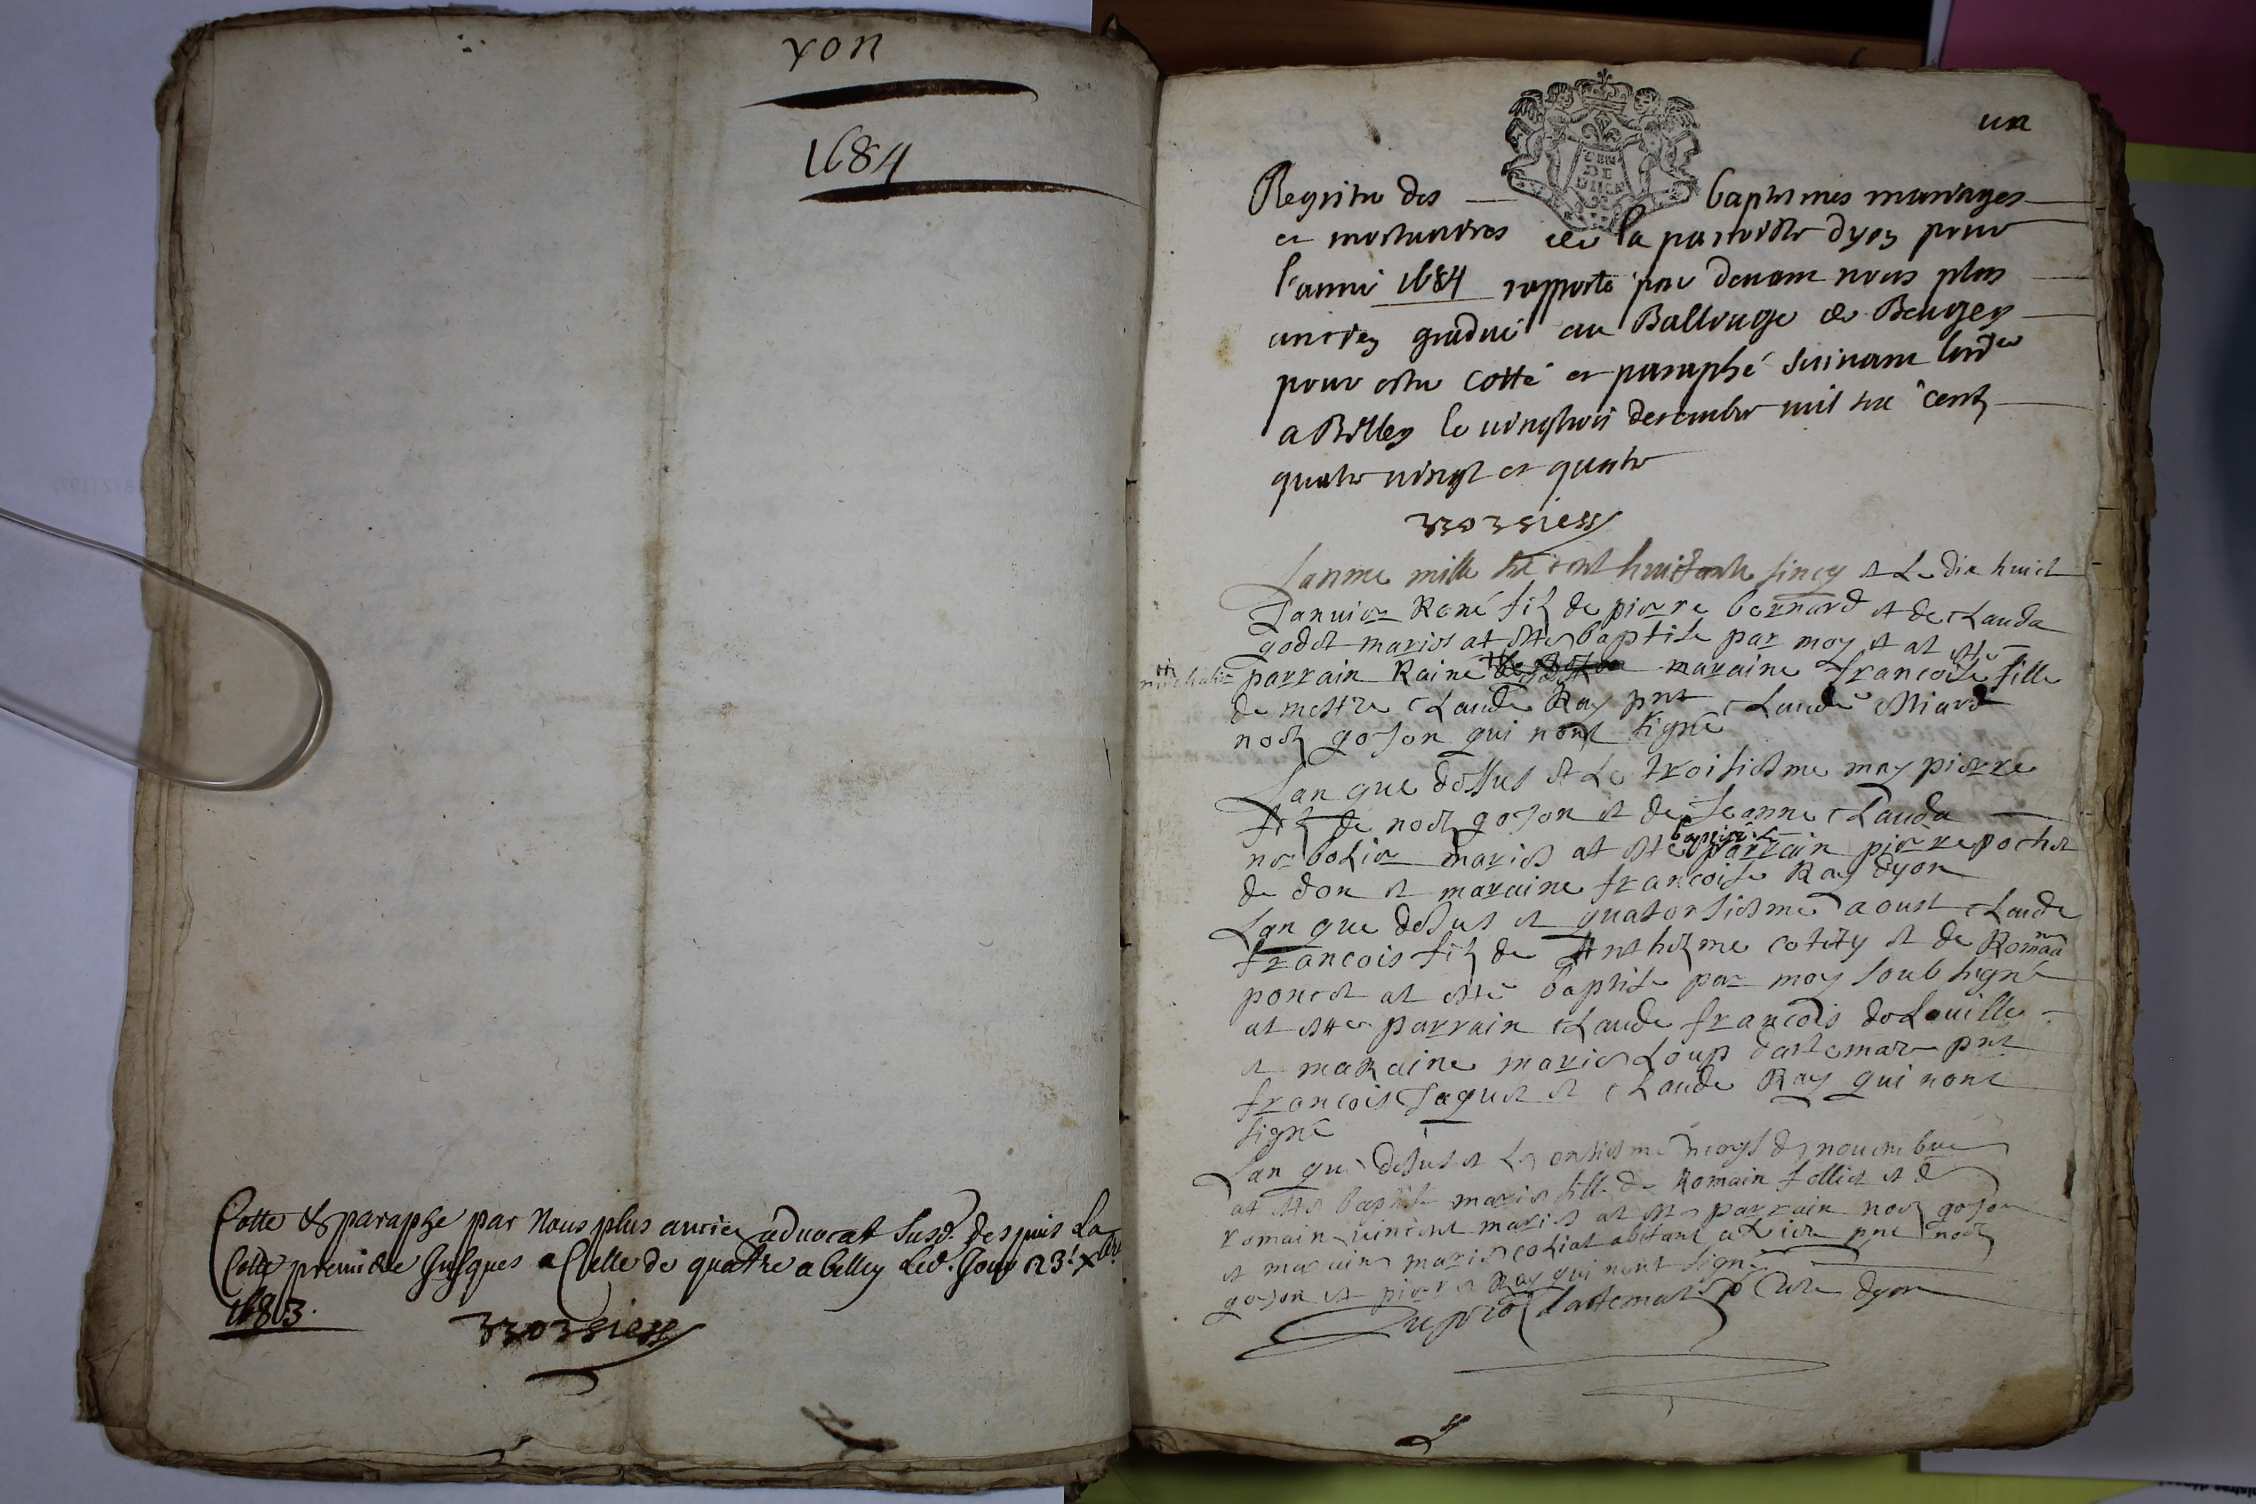 yon
1684
Cotte & paraphe par Nous plus ancien advocat susd. despuis La
Cotte premiere Jusques a Celle de quatre a belley led. Jour 23e. xbre.
1683.
un
GEN
DE
Registre des baptesmes mariages
et mortuaires de la parroisse dyon pour
l'année 1684 rapporté par devant nous plus
ancien gradué au Balliage de Beugey
pour estre cotté et paraphé suivant lord.ce
a Belley le vingtrois decembre mil six cent
quatre vingt et quatre
Lanne mille six cent huictante sincq et Le dix huict
Janvier René filz de pierre bernard et de Clauda
godet maries at este baptise par moy et at este
parrain Raine maraine francoise fille
de mestre Claude Ray pnt Claude
noel goJon qui nont signé
Lan que dessus et Le troisiesme may pierre
filz de noel goJon et de Jeanne Clauda
maries at esté baptisé parrain pierre pochet
de don et maraine francoise Ray dyon
Lan que desus et quatorsiesme aoust Claude
francois filz de Anthelme et de Romaine
poncet at esté baptise par moy soubsigné
at este parrain Claude francois
et maraine marie Loup dartemare pnt
francois Jaquet et Claude Ray qui nont
signé
Lan que desus et Le onsiesme de novembre
at este baptise marie fille de Romain et de
romain vincent maries at este parrain noel goJon
et maraine marie abitant pnt noel
goJon et pierre Ray qui nont signé
dartemare Cure dyon